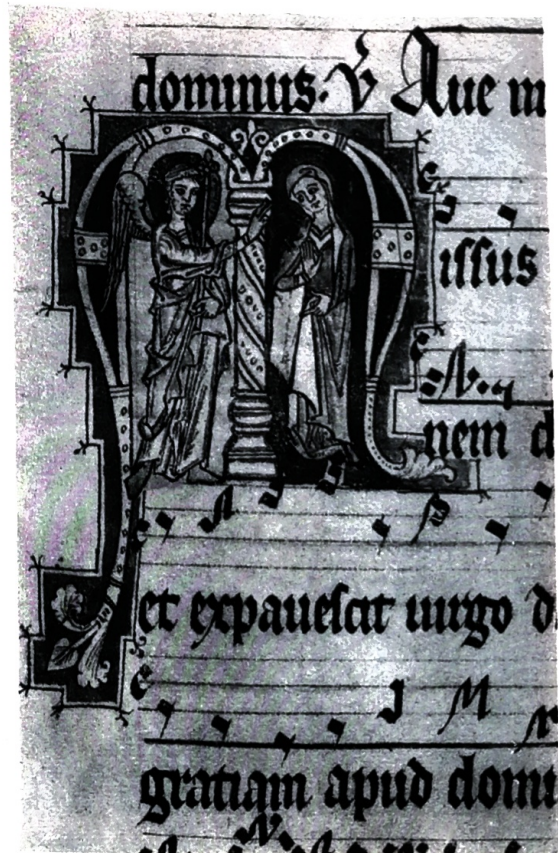 dominus. ℣ Aue m
M issus
nem d
et expauescit uirgo d
gratiam apud domi